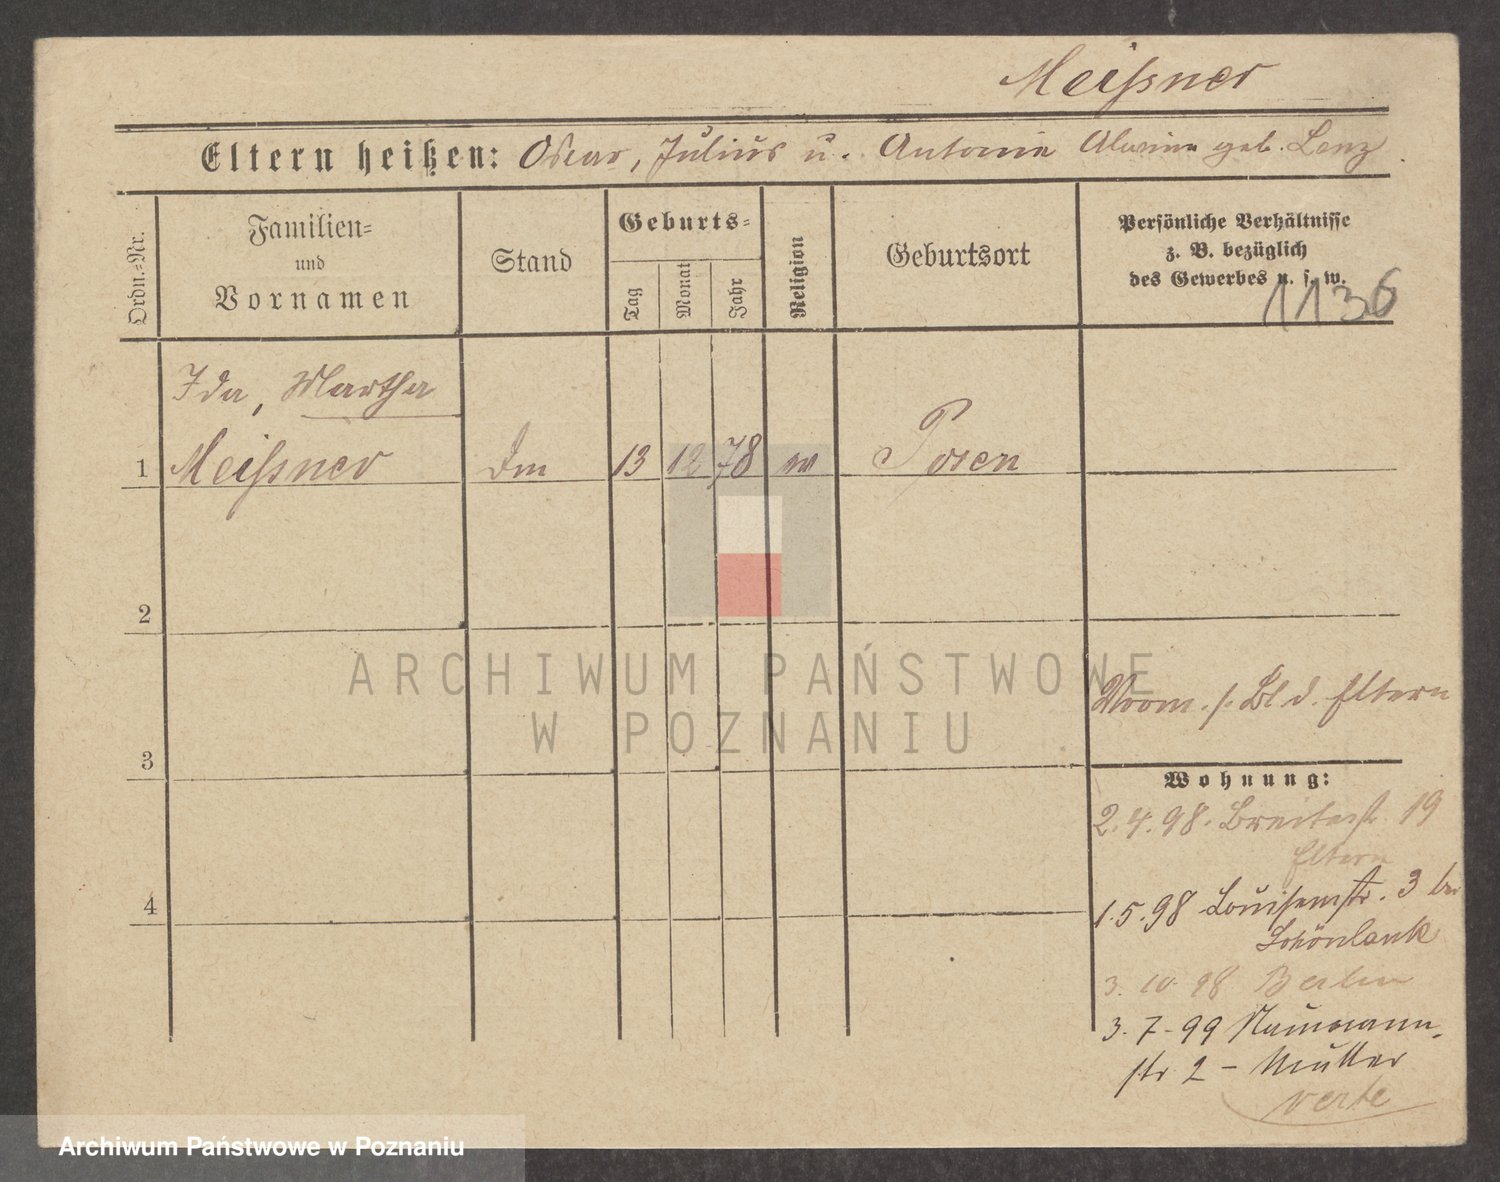 Meißner
Eltern heißen: Oscar, Julius u. Antonie Alwine geb. Lenz.
Ordn.-Nr.
Familien-
und
Vornamen
Stand
Geburts-
Tag
Monat
Jahr
Religion
Geburtsort
Persönliche Verhältnisse
z. B. bezüglich
des Gewerbes u. s. w.
1136
Ida, Martha
1 Meißner 13 12 78 Posen
2
ARCHIWUM PAŃSTWOWE
W POZNANIU
Bl d. Eltern
3
Wohnung:
2.4.98. Breitestr. 19
Eltern
4
1.5.98 Louisenstr. 3 bei
Schönlank
3. 10 98 Berlin
3.7-99 Naumann-
str 2 - Mutter
verte
Archiwum Państwowe w Poznaniu